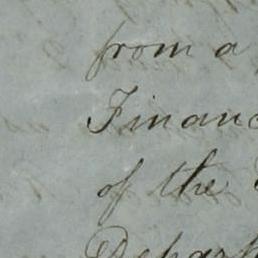 from a
Financ
of the
Depart